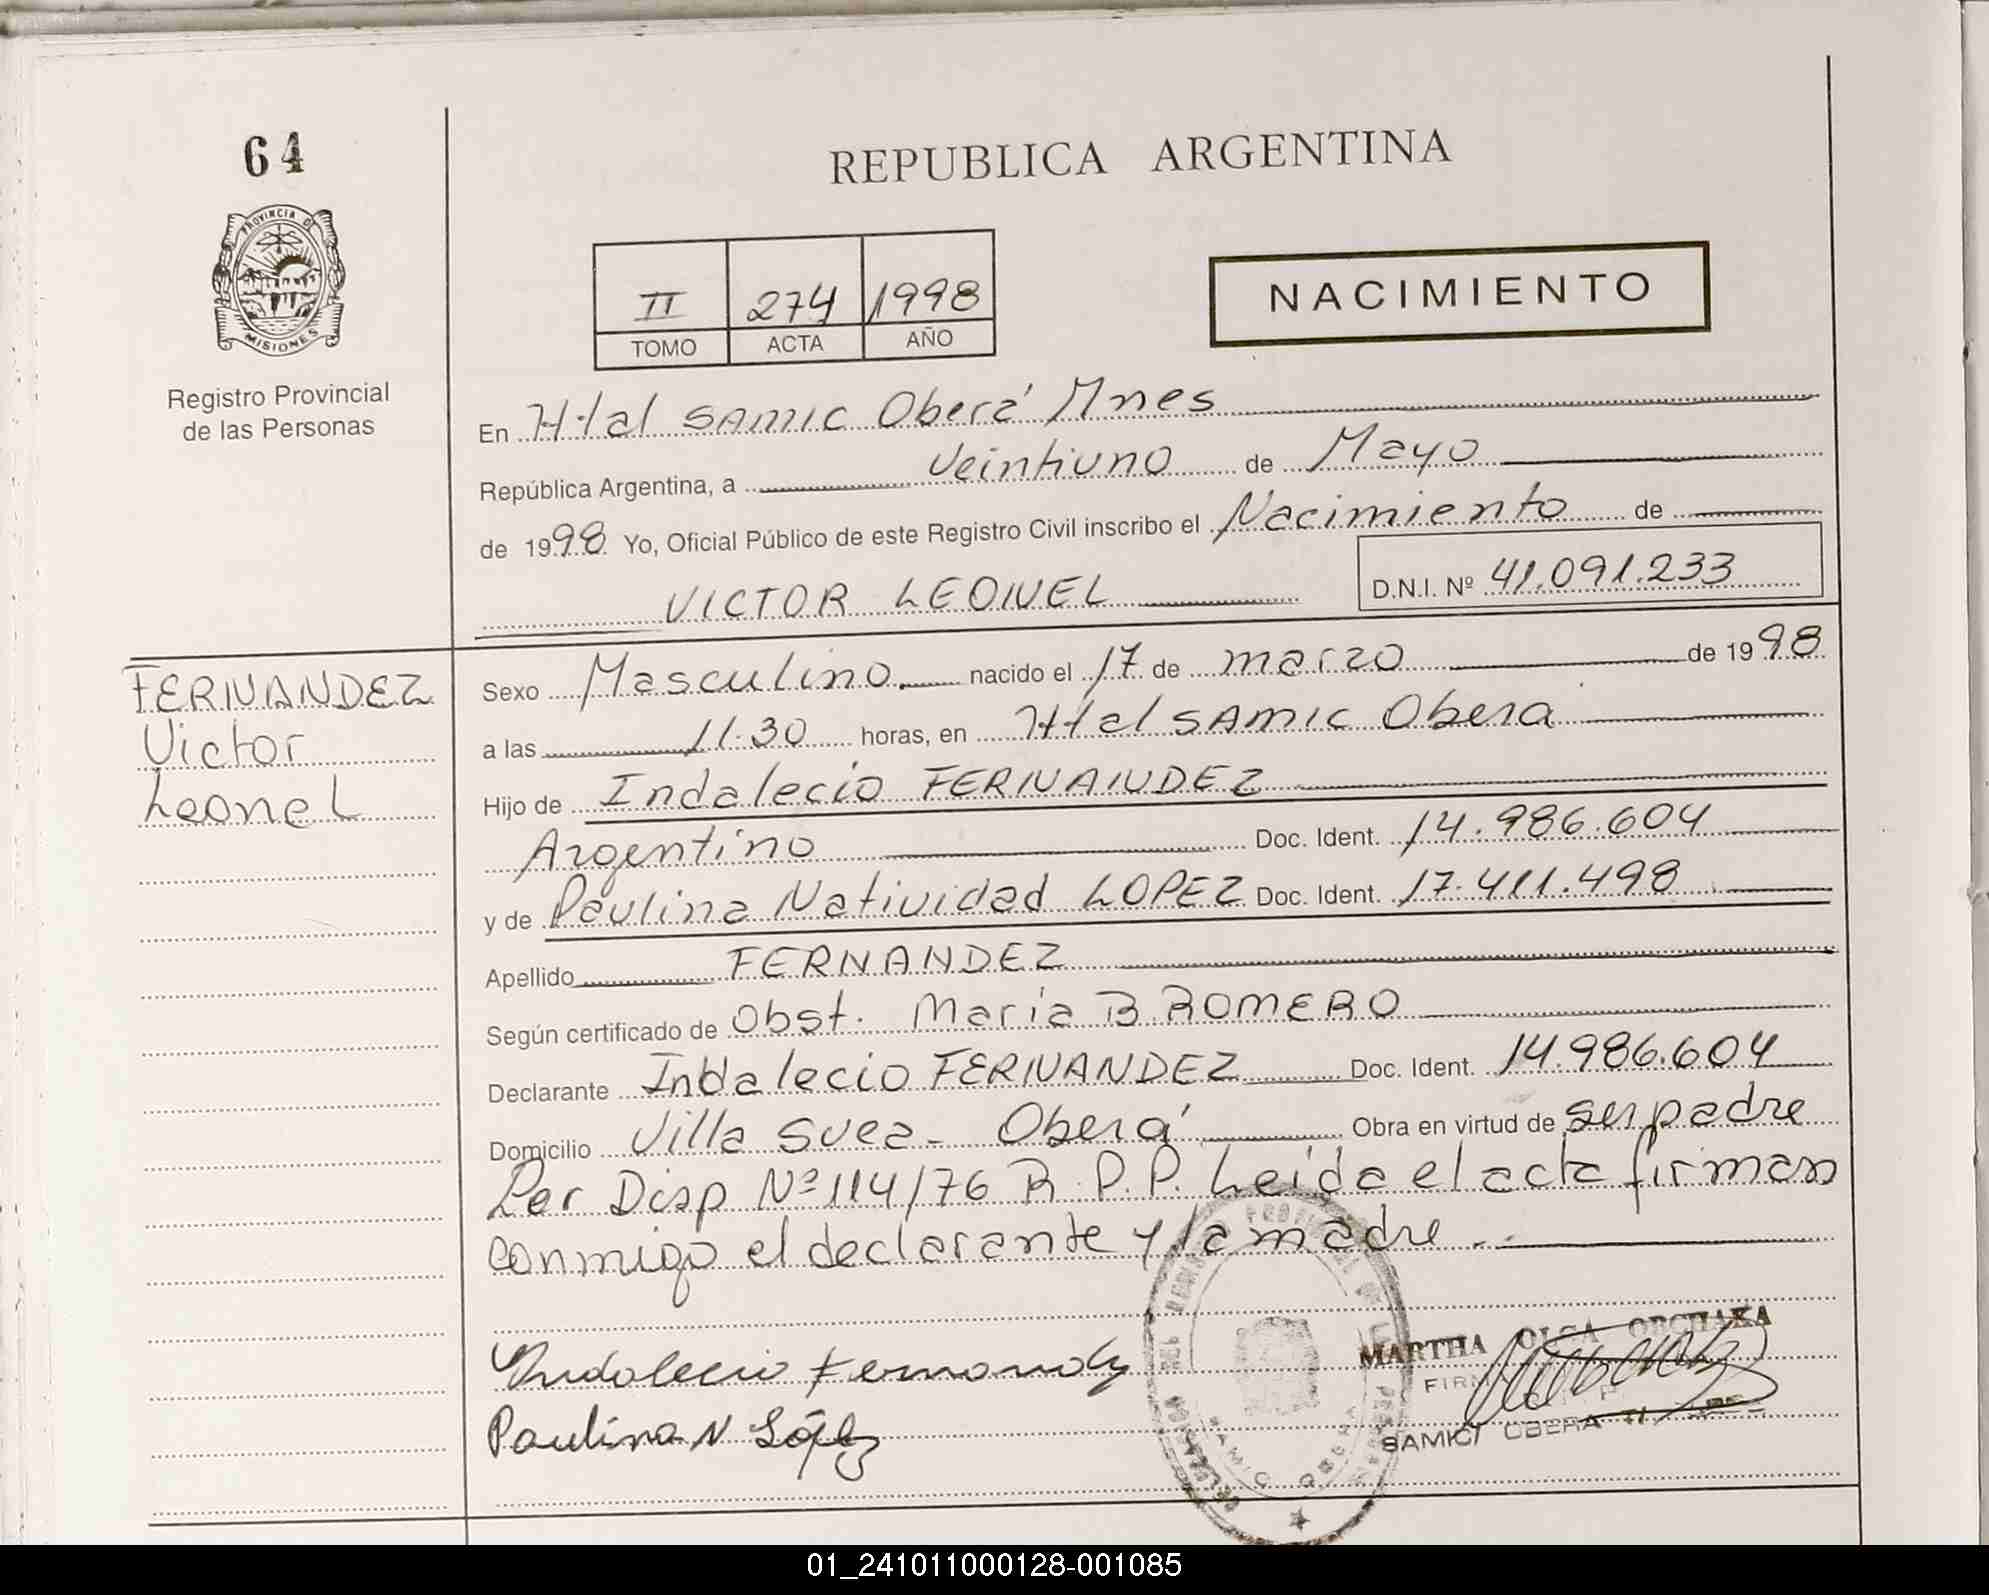 64
REPUBLICA ARGENTINA
PROVINCIA DE
MISIONES
Registro Provincial
de las Personas
II 274 1998
TOMO ACTA AÑO
NACIMIENTO
En Htal SAMIC Oberá Mnes
República Argentina, a Veintiuno de Mayo
de 1998 Yo, Oficial Público de este Registro Civil inscribo el Nacimiento de
VICTOR LEONEL D.N.I. Nº 41.091.233
FERNANDEZ
Victor
Leonel
Sexo Masculino nacido el 17 de marzo de 1998
a las 11.30 horas, en Htal SAMIC Obera
Hijo de Indalecio FERNANDEZ
Argentino Doc. Ident. 14.986.604
y de Paulina Natividad LOPEZ Doc. Ident. 17.411.498
Apellido FERNANDEZ
Según certificado de Obst. María B. ROMERO
Declarante Indalecio FERNANDEZ Doc. Ident. 14.986.604
Domicilio Villa Suea - Oberá Obra en virtud de ser padre
Per Disp Nº 114/76 R.P.P. Leida el acta firman
conmigo el declarante y la madre.
Indalecio Fernandez
Paulina N López
MARTHA OLGA
SAMIC OBERA
01_241011000128-001085